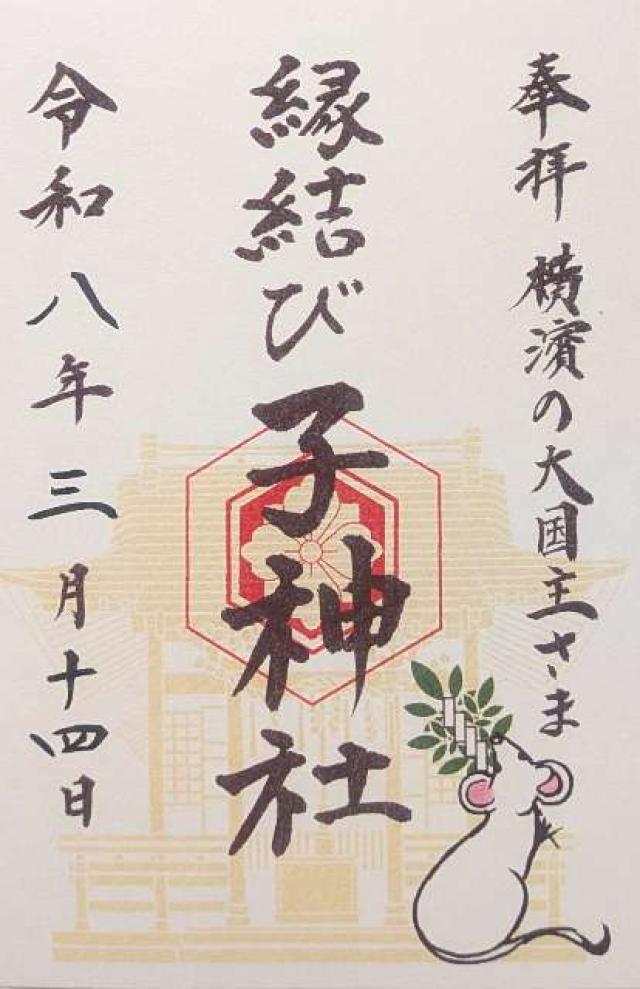 奉拝 横濱の大国主さま
縁結び 子神社
令和八年三月十四日